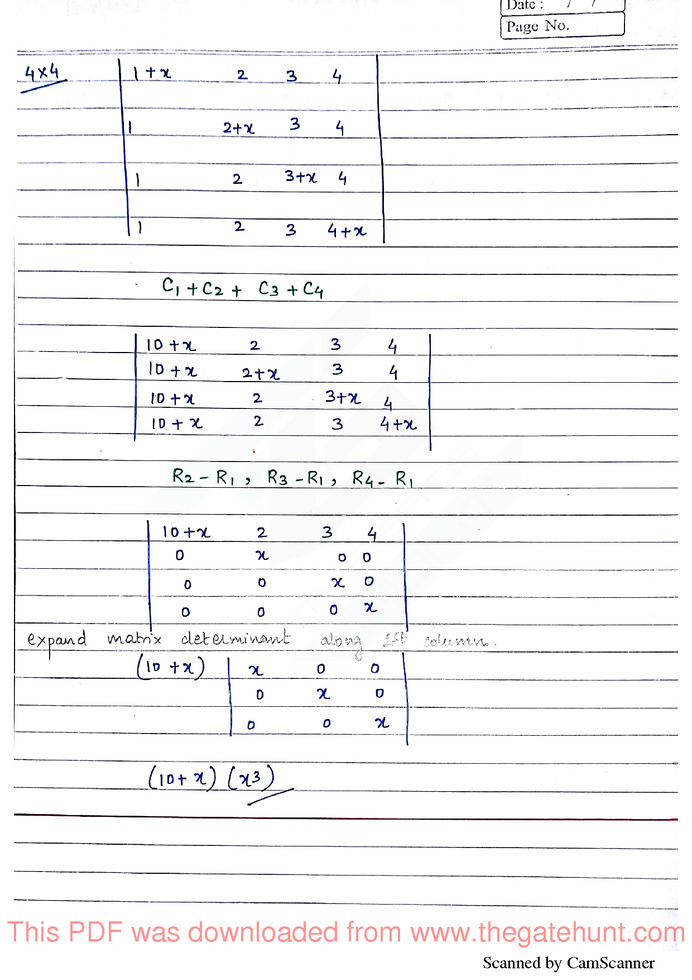 Date : / /
Page No.
4x4
1+x 2 3 4
1 2+x 3 4
1 2 3+x 4
1 2 3 4+x
C1+C2+ C3+C4
10+x 2 3 4
10+x 2+x 3 4
10+x 2 3+x 4
10+x 2 3 4+x
R2-R1, R3-R1, R4-R1
10+x 2 3 4
0 x 0 0
0 0 x 0
0 0 0 x
expand matrix determinant along 1st column.
(10+x) x 0 0
0 x 0
0 0 x
(10+x) (x3)
This PDF was downloaded from www.thegatehunt.com
Scanned by CamScanner